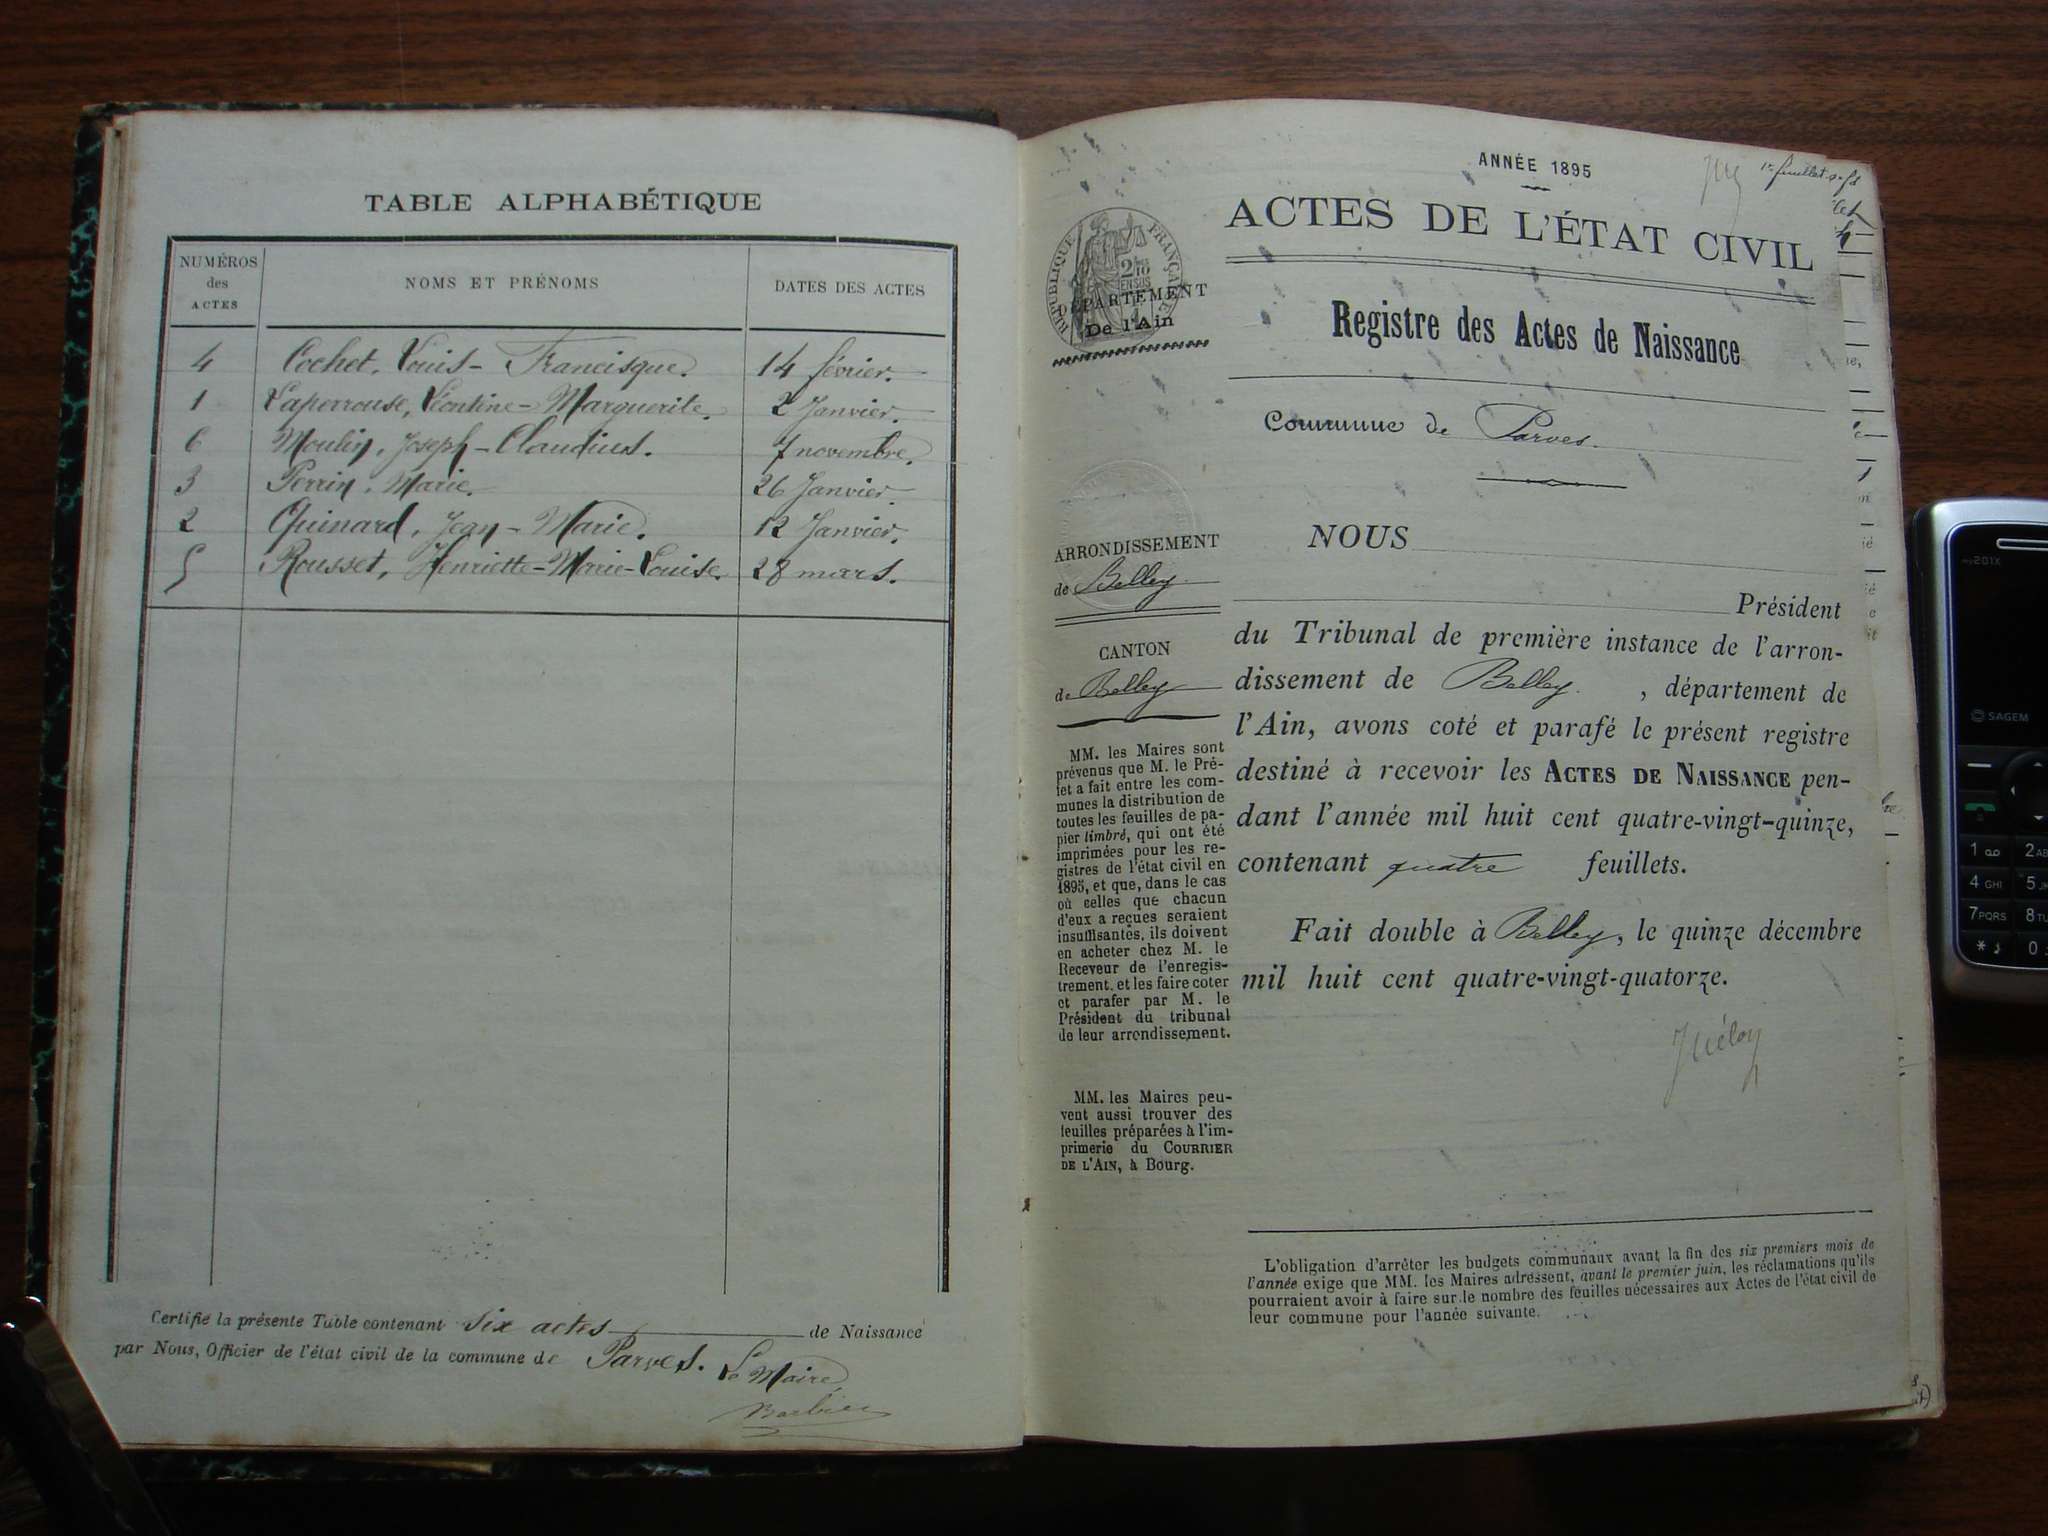 TABLE ALPHABÉTIQUE
NUMÉROS des ACTES
NOMS ET PRÉNOMS
DATES DES ACTES
4 Cochet, Louis-Francisque. 14 février.
1 Laperrouse, Léontine-Marguerite. 2 Janvier.
6 Moulin, Joseph-Claudius. 7 novembre.
3 Perrin, Marie. 26 Janvier
2 Quinard, Jean-Marie. 12 Janvier.
5 Rousset, Henriette-Marie-Louise. 28 mars.
Certifié la présente Table contenant six actes de Naissance
par Nous, Officier de l'état civil de la commune de Parves. Le Maire
Barbier
ANNÉE 1895
1er feuillet
ACTES DE L'ÉTAT CIVIL
RÉPUBLIQUE FRANÇAISE
DÉPARTEMENT
De l'Ain
Registre des Actes de Naissance
Commune de Parves.
NOUS
Président
du Tribunal de première instance de l'arron-
dissement de Belley. , département de
l'Ain, avons coté et parafé le présent registre
destiné à recevoir les ACTES DE NAISSANCE pen-
dant l'année mil huit cent quatre-vingt-quinze,
contenant quatre feuillets.
Fait double à Belley, le quinze décembre
mil huit cent quatre-vingt-quatorze.
ARRONDISSEMENT
de Belley
CANTON
de Belley
MM. les Maires sont
prévenus que M. le Pré-
fet a fait entre les com-
munes la distribution de
toutes les feuilles de pa-
pier timbré, qui ont été
imprimées pour les re-
gistres de l'état civil en
1895, et que, dans le cas
où celles que chacun
d'eux a reçues seraient
insuffisantes, ils doivent
en acheter chez M. le
Receveur de l'enregis-
trement, et les faire coter
et parafer par M. le
Président du tribunal
de leur arrondissement.
MM. les Maires peu-
vent aussi trouver des
feuilles préparées à l'im-
primerie du COURRIER
DE L'AIN, à Bourg.
L'obligation d'arrêter les budgets communaux avant la fin des six premiers mois de
l'année exige que MM. les Maires adressent, avant le premier juin, les réclamations qu'ils
pourraient avoir à faire sur le nombre des feuilles nécessaires aux Actes de l'état civil de
leur commune pour l'année suivante.
my201X
SAGEM
1
2 AB
4 GHI
5 J
7 PQRS
8 TU
*
0